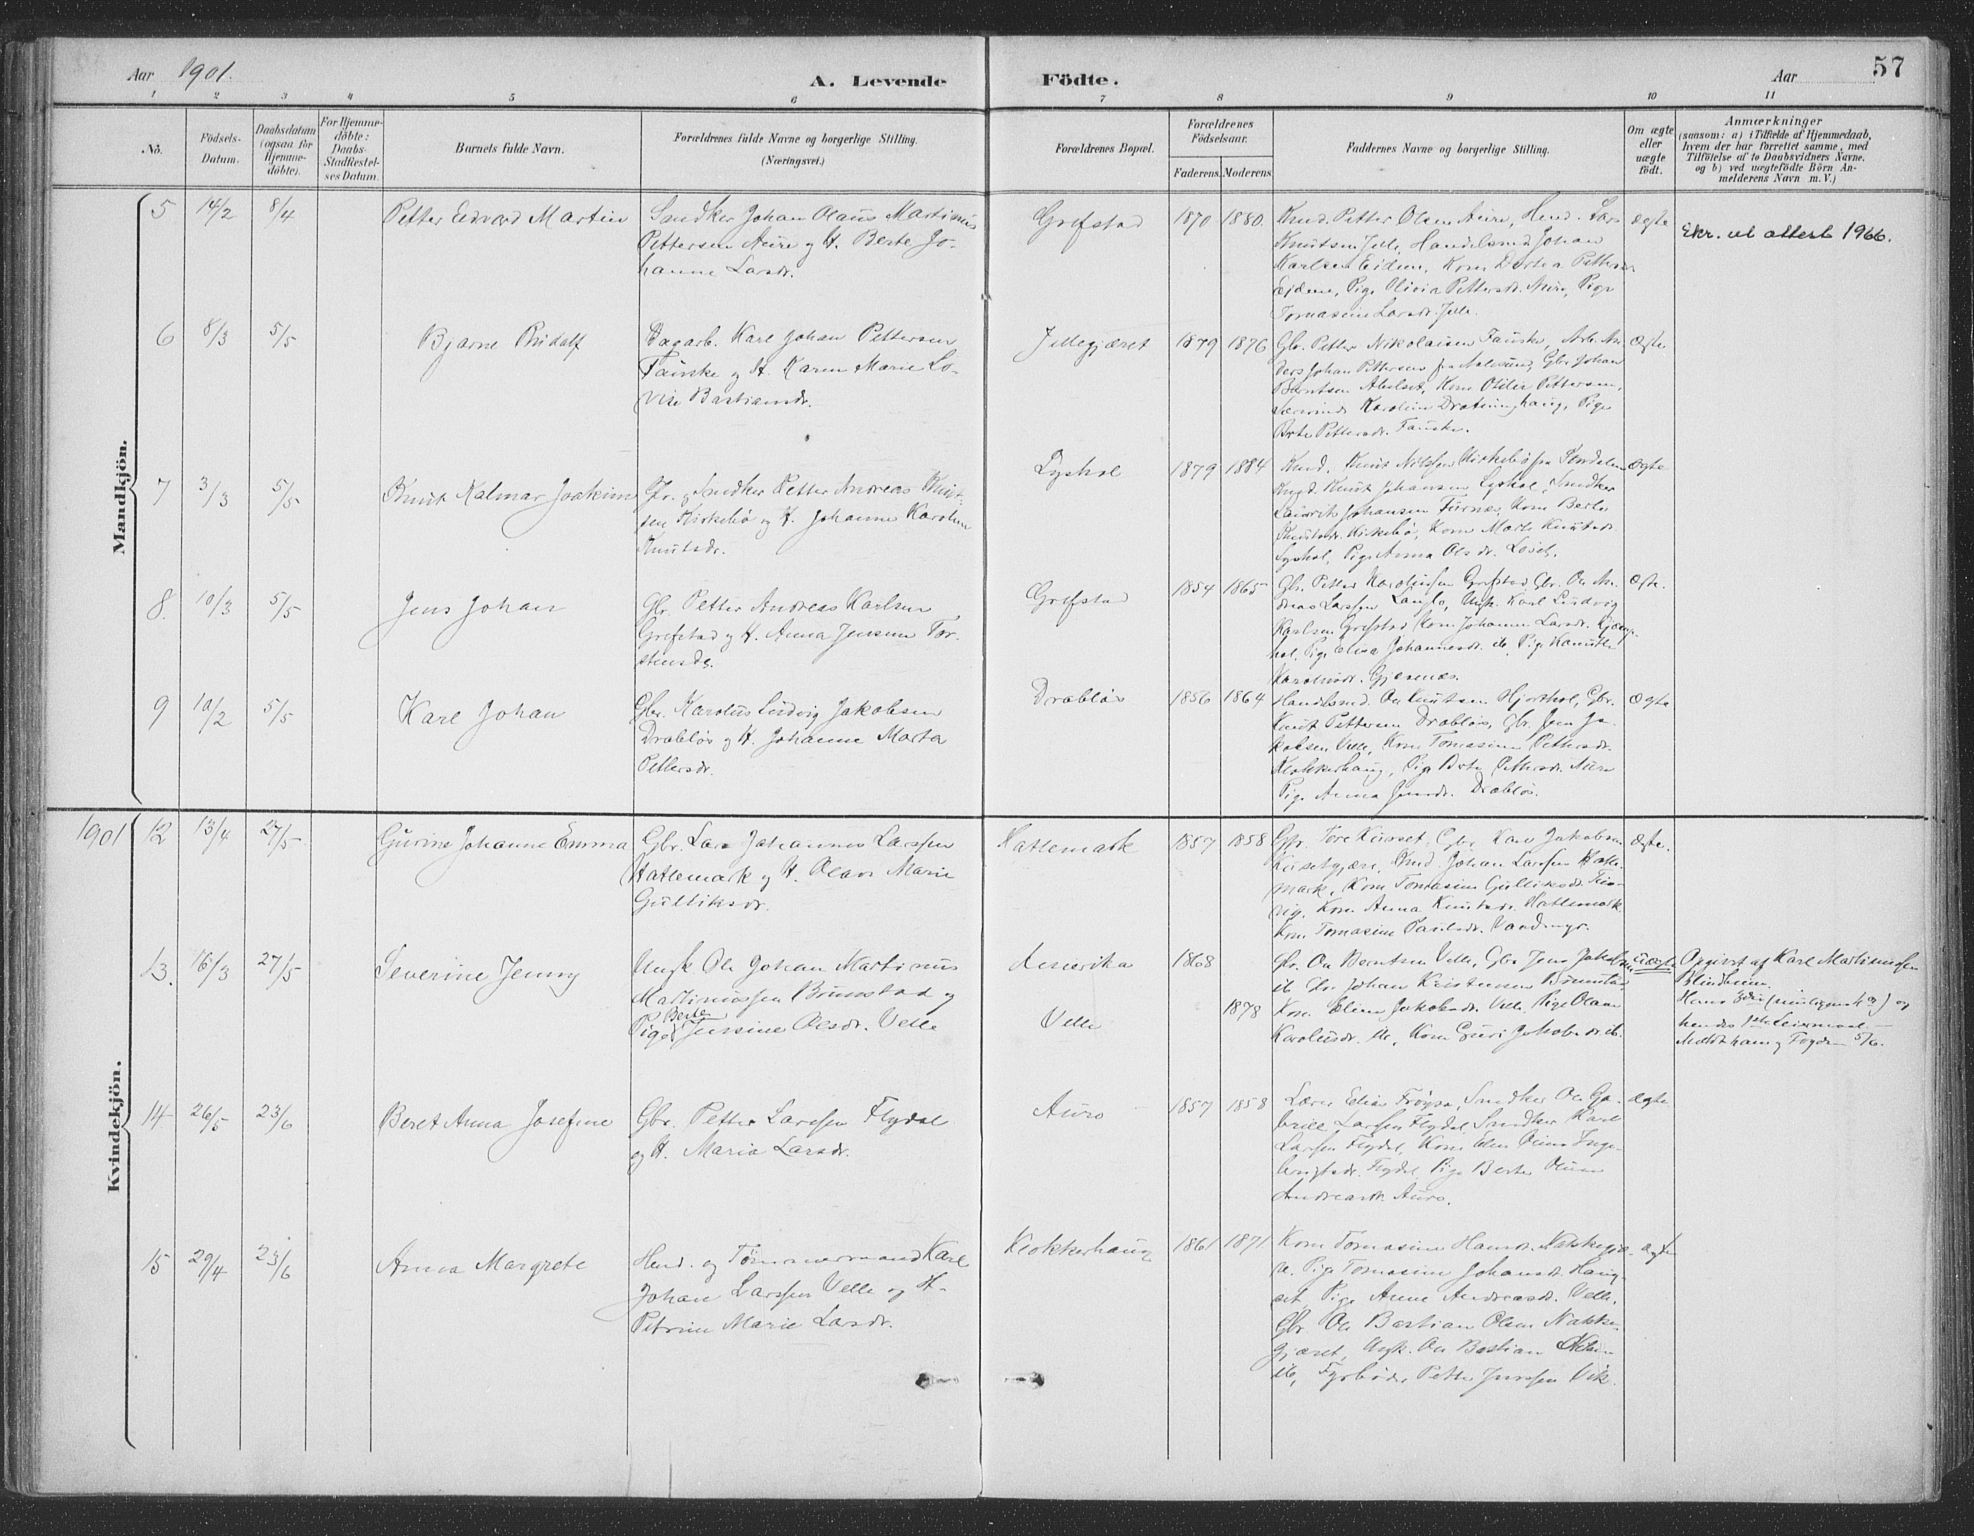 Aar 1901.
A. Levende Födte.
Aar
57
1 2 3 4 5 6 7 8 9 10 11
No.
Födsels-Datum.
Daabsdatum (ogsaa for Hjemme-döbte).
For Hjemme-döbte: Daabs-Stadfæstel-ses Datum.
Barnets fulde Navn.
Forældrenes fulde Navne og borgerlige Stilling.
(Næringsvei.)
Forældrenes Bopæl.
Forældrenes Födselsaar.
Faderens. Moderens.
Faddernes Navne og borgerlige Stilling.
Om ægte eller uægte födt.
Anmærkninger
(saasom: a) i Tilfælde af Hjemmedaab, hvem der har forrettet samme, med Tilföielse af to Daabsvidners Navne. og b) ved uægtefödte Börn An-melderens Navn m. V.)
Mandkjön.
5 14/2 8/4 Petter Edvard Martin
Smdker Johan Olaus Martinus
Pettersen Aure og H. Berte Jo-
hanne Larsdr.
Grefstad 1870 1880.
Knud Petter Olsen Aure, Hmd. Lars
Knutsen Jelle, Handelsmd Johan
Karlsen Eidem, Kone Dortea Petters
Eidem, Pige Olivia Pettersdr. Aure, Pige
Tomasine Larsdr. Jelle.
ægte
Ekr. ut attest 1966.
6 8/3 5/5 Bjarne Rudolf
Dagarb. Karl Johan Pettersen
Fauske og H. Karen Marie Lo-
vise Bastiansdr.
Jellegjæret 1879 1876
Gbr. Petter Nikolaisen Fauske, Arb. An-
ders Johan Pettersen fra Aalesund, Gbr. Johan
Berntsen Abelset, Kone Otilie Pettersen,
Karoline Dratninghaug, Pige
Berte Pettersdr. Fauske.
Ægte
7 3/3 5/5 Knut Kalmar Joakim
Fr. og Smdker Petter Andreas Knut-
sen Kirkebø og H. Johanne Karoline
Knutsdr.
Lyshol 1879 1884
Kmd. Knut Nilssen Kirkebø fra Stordalen
Kmd. Knut Johansen Lyshol, Smdker
Laurits Johansen Furnes, Kone Berte
Knutsdr. Kirkebø, Kone Marte Knutsdr.
Lyshol, Pige Anna Olsdr.
Ægte
8. 10/3 5/5 Jens Johan
Gbr. Petter Andreas Karlsen
Grefstad og H. Anna Jensine Tor-
stensdr.
Grefstad 1854 1865
Gbr. Petter Karolusen Grefstad Gbr. Ole An-
dreas Larssen Langlo, Ungk. Karl Ludvig
Karlsen Grefstad Kone Johanne Larsdr.
Pige Elina Johannesdr. ib. Pige Kamille
Karolusdr. Gjæsenes.
Ægte.
9 10/2 5/5 Karl Johan
Gbr. Karolus Ludvig Jakobsen
Drabløs og H. Johanne Marta
Pettersdr.
Drabløs 1856 1864
Handlsmd. Ole Knutsen Hjorthol, Gbr.
Knut Pettersen Drabløs, Gbr. Jens Ja-
kobsen Velle, Kone Tomasine Pettersdr.
Klokkerhaug, Pige Berte Pettersdr. Aure
Pige Anna Jensdr. Drabløs.
Ægte
1901
Kvindekjön.
12 13/4 27/5 Gurine Johanne Emma
Gbr. Lars Johannes Larssen
Hatlemark og H. Olave Marie
Gulliksdr.
Hatlemark 1857 1858
Gbr. Tore Kurset, Gbr. Karl Jakobsen
Kursetgjære, Kmd. Johan Larssen Hatle-
mark, Kone Tomasine Gulliksdr.
Kone Anna Knutsdr. Hatlemark
Kone Tomasine Paulsdr.
Ægte.
13. 16/3 27/5 Severine Jenny
Ungk Ole Johan Martinus
Martinussen Brunstad og
Pige Berte Jensine Olsdr. Velle
Amerika
Velle
1868
1878
Gbr. Ole Berntsen Velle, Gbr. Jens Jakobsen
ib. Fr. Johan Kristensen Brunstad
Kone Eline Jakobsdr. Velle Pige Olave
Karolusdr. ib, Kone Guri Jakobsdr. ib.
Uægte
Opgivet af Karl Martinussen
Blindheim.
Hans 2den og
hendes 1ste Leiermaal —
14 26/5 23/6 Beret Anna Josefine
Gbr. Petter Larssen Flydal
og H. Maria Larsdr.
Auro 1857 1858
Lærer Elias Frøysa, Smdker Ole Ga-
briel Larssen Flydal Smdker Karl
Larssen Flydal, Kone Elen Oline Inge-
brigtsdr. Flydal, Pige Berte Oline
Andreasdr. Auro.
ægte
15 29/4 23/6 Anna Margrete
Hmd. og Tømmermand Karl
Johan Larssen Velle og H.
Petrine Marie Larsdr.
Klokkerhaug 1861 1871
Kone Tomasine Hansdr. Nakkegjæ-
re. Pige Tomasine Johansdr. Haug-
set, Pige Anne Andreasdr. Velle,
Gbr Ole Bastian Olsen Nakke-
gjæret, Ungk. Ole Bastian
ib, Fyrbøder Petter Jenssen Vik.
ægte